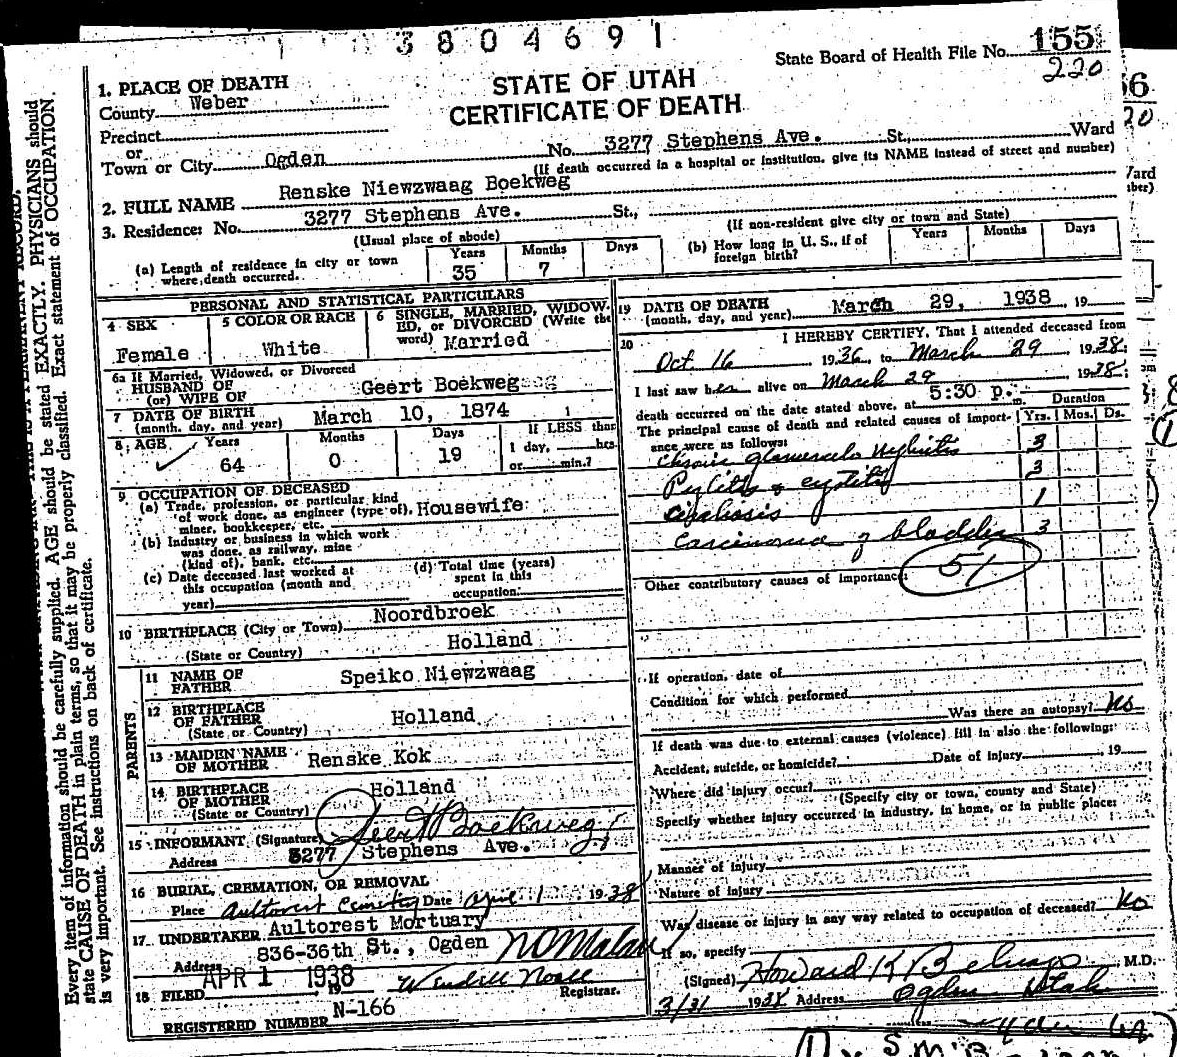 3804691
State Board of Health File No. 155
220
STATE OF UTAH
CERTIFICATE OF DEATH
1. PLACE OF DEATH
County Weber
Precinct
or
Town or City Ogden No. 3277 Stephens Ave. St., Ward
(If death occurred in a hospital or institution, give its NAME instead of street and number)
2. FULL NAME Renske Niewzwaag Boekweg
3. Residence: No. 3277 Stephens Ave. St.,
(Usual place of abode)
(If non-resident give city or town and State)
(a) Length of residence in city or town where death occurred. Years 35 Months 7 Days
(b) How long in U. S., if of foreign birth? Years Months Days
PERSONAL AND STATISTICAL PARTICULARS
4 SEX Female
5 COLOR OR RACE White
6 SINGLE, MARRIED, WIDOWED, or DIVORCED (Write the word) Married
6a If Married, Widowed, or Divorced
HUSBAND OF
(or) WIFE OF Geert Boekweg
7 DATE OF BIRTH
(month, day, and year) March 10, 1874
8 AGE Years 64 Months 0 Days 19
If LESS than
1 day, hrs.
or min.?
9 OCCUPATION OF DECEASED
(a) Trade, profession, or particular kind
of work done, as engineer (type of),
miner, bookkeeper, etc. Housewife
(b) Industry or business in which work
was done, as railway, mine
(kind of), bank, etc.
(c) Date deceased last worked at
this occupation (month and
year)
(d) Total time (years)
spent in this
occupation:
10 BIRTHPLACE (City or Town) Noordbroek
(State or Country) Holland
PARENTS
11 NAME OF
FATHER Speiko Niewzwaag
12 BIRTHPLACE
OF FATHER
(State or Country) Holland
13 MAIDEN NAME
OF MOTHER Renske Kok
14 BIRTHPLACE
OF MOTHER
(State or Country) Holland
15 INFORMANT (Signature) Geert Boekweg
Address 3277 Stephens Ave.
16 BURIAL, CREMATION, OR REMOVAL
Place Aultorest Cemetery Date April 1 1938
17 UNDERTAKER Aultorest Mortuary
Address 836-36th St., Ogden
18 FILED APR 1 1938
Registrar.
REGISTERED NUMBER N-166
19 DATE OF DEATH
(month, day, and year) March 29, 1938, 19
20 I HEREBY CERTIFY, That I attended deceased from
Oct 16 1936, to March 29 1938;
I last saw her alive on March 29 1938;
death occurred on the date stated above, at 5:30 p. m.
The principal cause of death and related causes of importance were as follows:
Duration
Yrs. Mos. Ds.
Chronic glomerulo nephritis 3
Pyelitis & cystitis 3
1
Carcinoma of bladder 3
51
Other contributory causes of importance:
If operation, date of
Condition for which performed
Was there an autopsy? No
If death was due to external causes (violence) fill in also the following:
Accident, suicide, or homicide? Date of injury , 19
Where did injury occur?
(Specify city or town, county and State)
Specify whether injury occurred in industry, in home, or in public place:
Manner of injury
Nature of injury
Was disease or injury in any way related to occupation of deceased? No
If so, specify
(Signed) Howard K , M.D.
3/31 1938 Address Ogden Utah
Every item of information should be carefully supplied. AGE should be stated EXACTLY. PHYSICIANS should
state CAUSE OF DEATH in plain terms, so that it may be properly classified. Exact statement of OCCUPATION
is very important. See instructions on back of certificate.